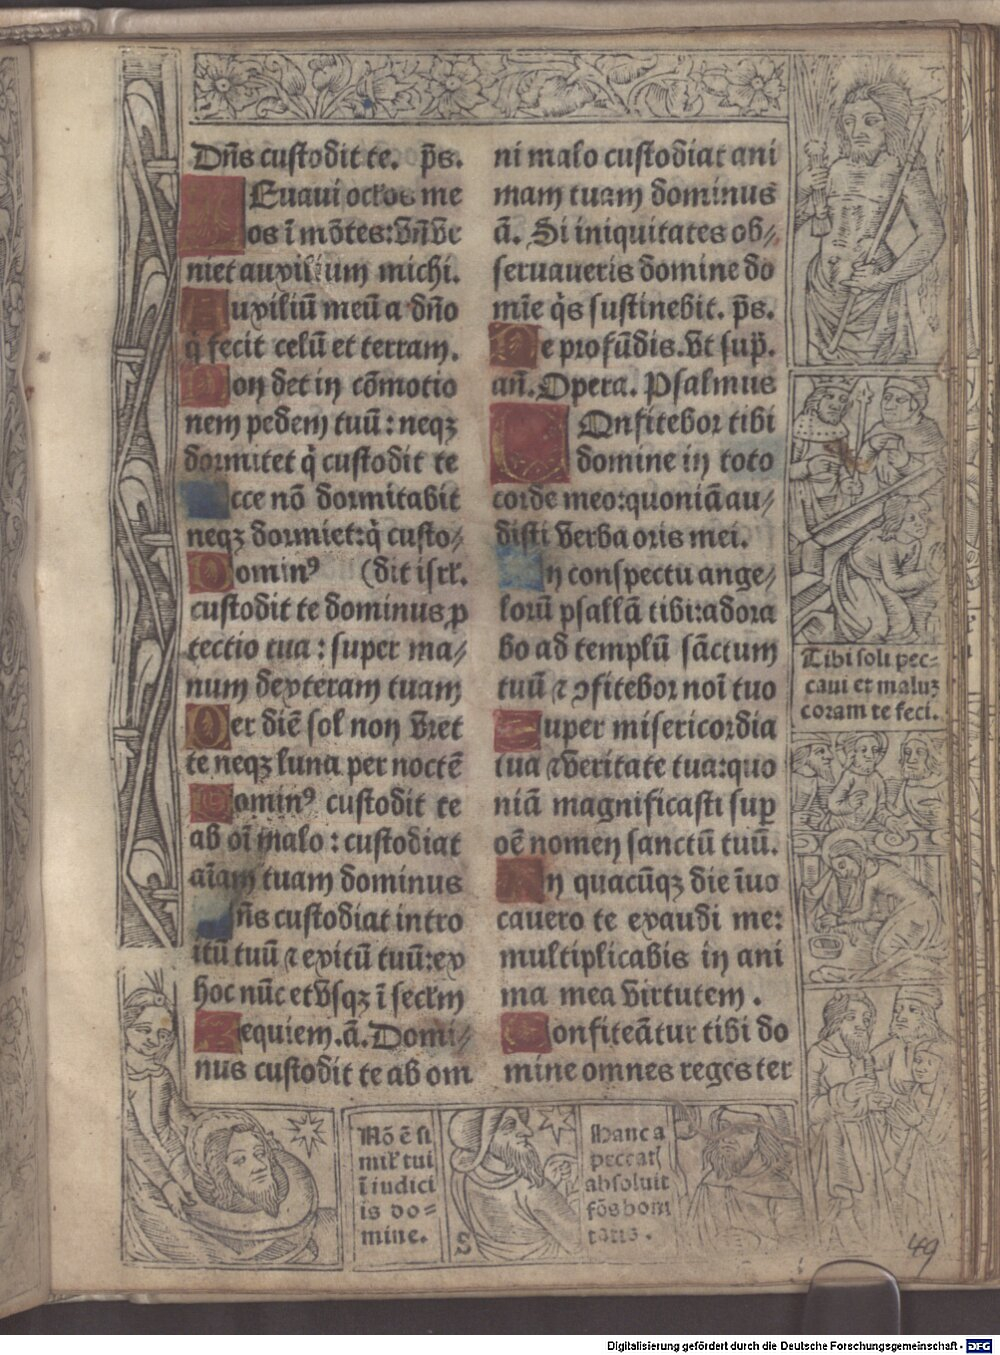 Dn̄s custodit te. p̄s.
Leuaui oclos me
os ī mōtes: vn̄ ve
niet auxilium michi.
Auxiliū meū a dn̄o
q̇ fecit celū et terram.
Non det in cōmotio
nem pedem tuū : neqꝫ
dormitet q̇ custodit te
Ecce nō dormitabit
neqꝫ dormiet: q̇ custo⸗
Dominꝰ (dit isrl̄.
custodit te dominus ꝓ
tectio tua : super ma⸗
num dexteram tuam
Per diē sol non vret
te neqꝫ luna per noctē
Dominꝰ custodit te
ab oī malo : custodiat
aīam tuam dominus
Dn̄s custodiat intro
itū tuū ⁊ exitū tuū: ex
hoc nūc et vsqꝫ ī seclm
Requiem. ā. Domi⸗
nus custodit te ab om
ni malo custodiat ani
mam tuam dominus
ā. Si iniquitates ob⸗
seruaueris domine do
mīe q̇s sustinebit. p̄s.
De profūdis. Vt sup̄.
an̄. Opera. Psalmus
Confitebor tibi
domine in toto
corde meo: quoniā au⸗
disti verba oris mei.
In conspectu ange⸗
lorū psallā tibi: adora
bo ad templū sāctum
tuū ⁊ ↄfitebor noī tuo
Super misericordia
tua ⁊ veritate tua: quo
niā magnificasti suꝑ
oē nomen sanctū tuū.
In quacūqꝫ die īuo
cauero te exaudi me:
multiplicabis in ani
ma mea virtutem .
Confiteātur tibi do
mine omnes reges ter
Tibi soli pec⸗
caui et maluꝫ
coram te feci.
Nō ē si
mil' tui
ī iudici
is do⸗
mine.
Hanc a
peccat'
absoluit
fōs boni
tatis .
49
Digitalisierung gefördert durch die Deutsche Forschungsgemeinschaft - DFG